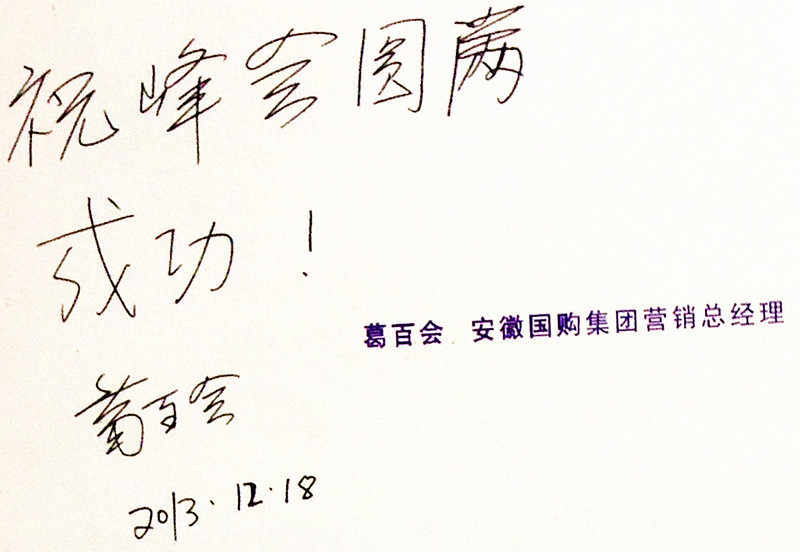 祝峰会圆满
成功！
葛百会 安徽国购集团营销总经理
葛百会
2013.12.18